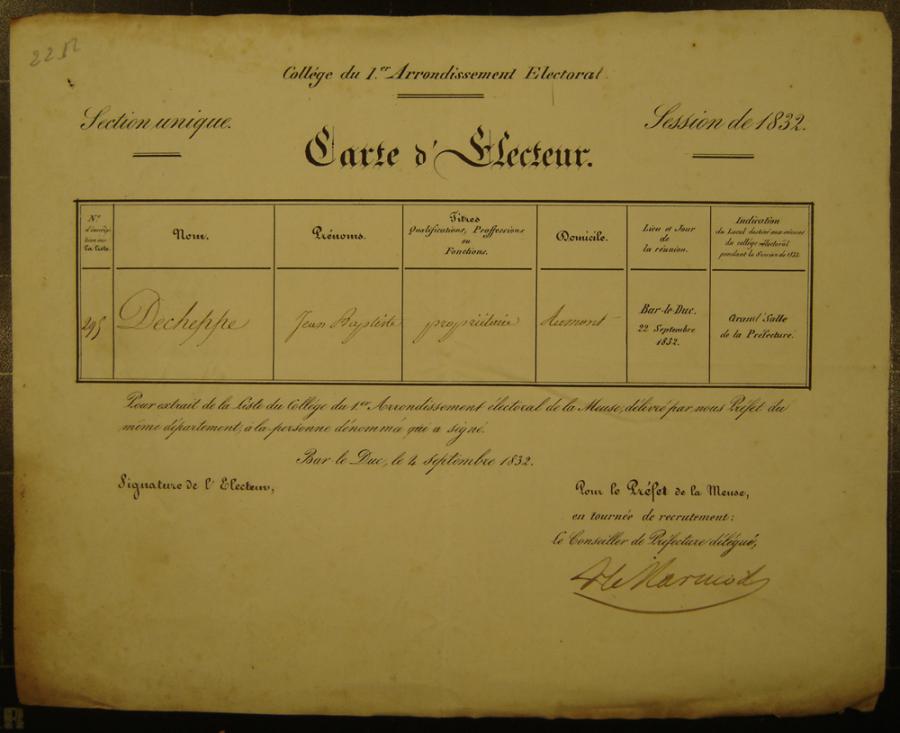 Collége du 1.er Arrondissement Electoral.
Section unique.
Session de 1832.
Carte d'Electeur.
N.º
la liste.
Nom.
Prénoms.
Titres
Qualifications, Proffessions
ou
Fonctions.
Domicile.
Lieu et Jour
de
la réunion.
Indication
du Local destiné aux séances
du collège électoral
pendant la Session de 1832.
295
Decheppe
Jean Baptiste
propriétaire
Bar-le-Duc.
22 Septembre
1832.
Grand' Salle
de la Préfecture.
Pour extrait de la Liste du Collége du 1.er Arrondissement électoral de la Meuse, délivré par nous Préfet du
même département, a la personne dénommé qui a signé.
Bar-le-Duc, le 4 Septembre 1832.
Signature de l'Electeur,
Pour le Préfet de la Meuse,
en tournée de recrutement:
Le Conseiller de Préfecture délégué,